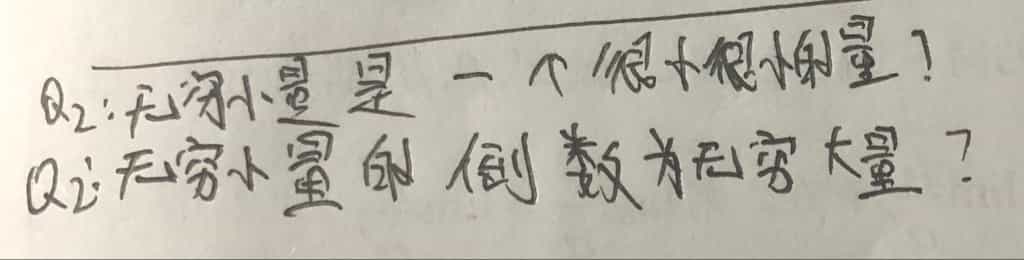 Q2:无穷小量是一个很小很小的量?
Q2:无穷小量的倒数为无穷大量?